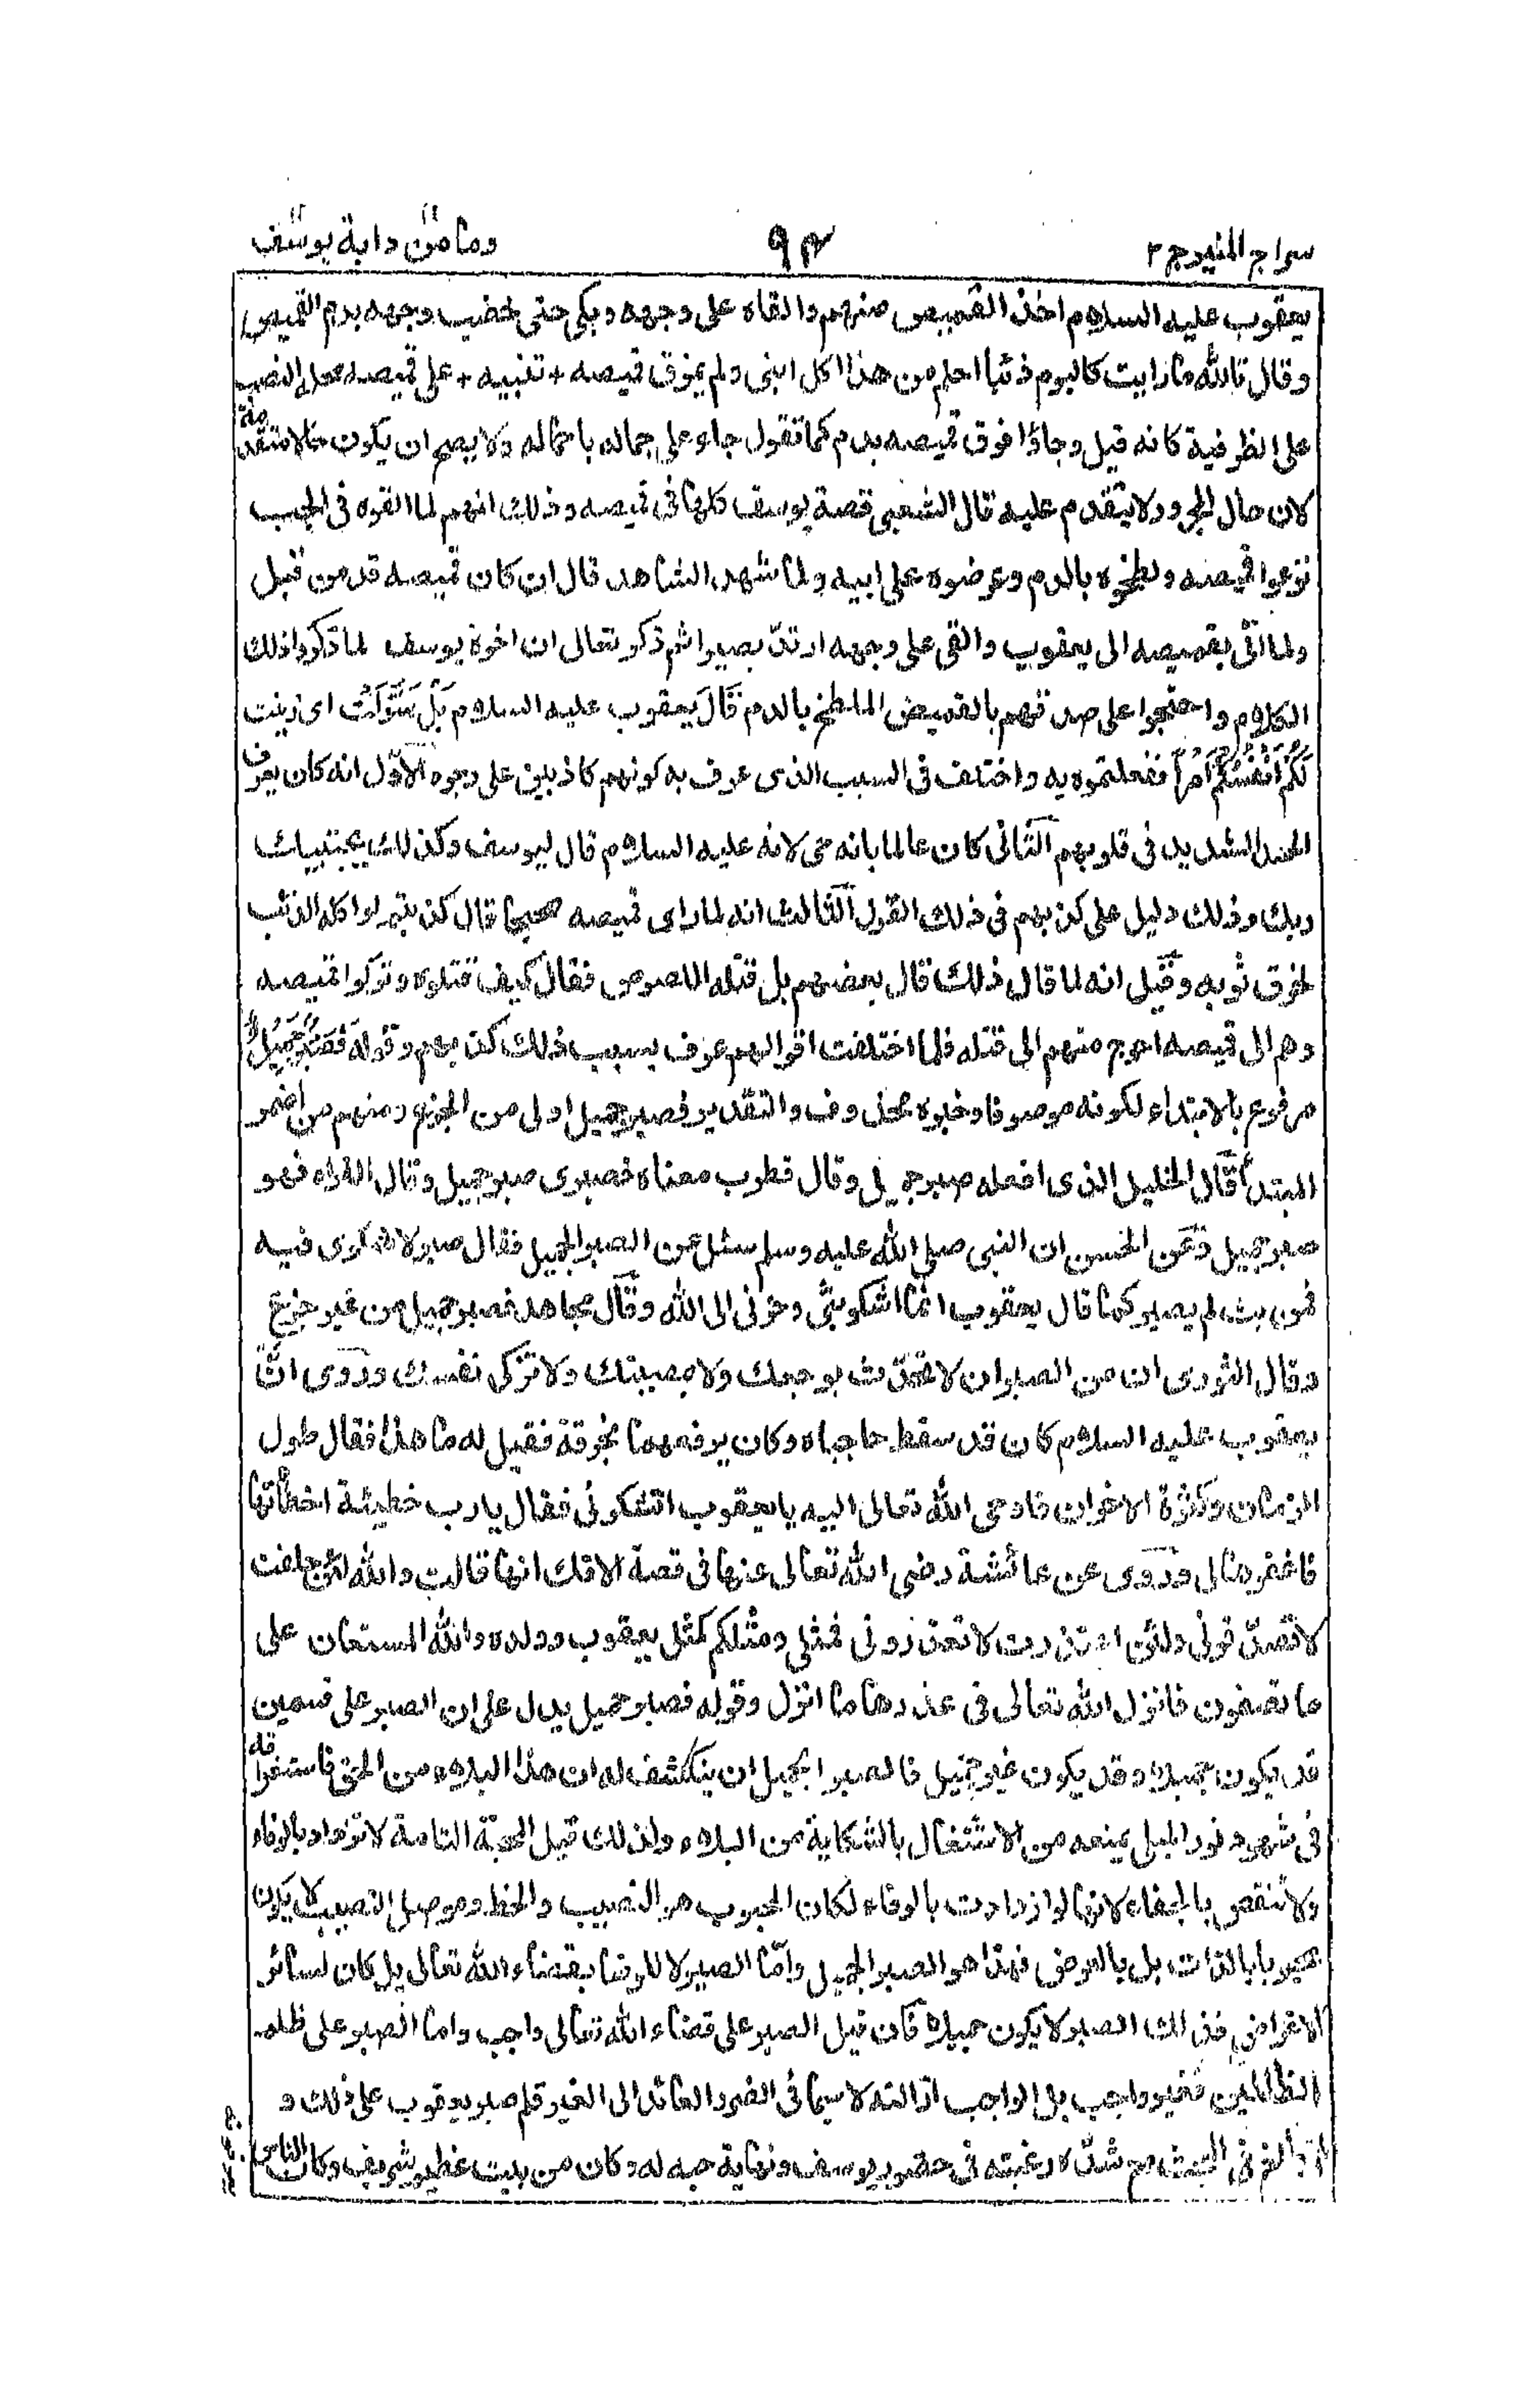 سراج المنير ج ٢
٩٣
وما من دابة يوسف
يعقوب عليه السلام اخذ القميص منهم والقاه على وجهه وبكى حتى خضب وجهه بدم القميص
وقال تالله ما رايت كاليوم ذئبا احلم من هذا اكل ابنى ولم يمزق قميصه + تنبيه + على قميصه محله النصب
على الظرفية كانه قيل وجاؤا فوق قميصه بدم كما تقول جاء على جماله باحماله ولا يصح ان يكون حالا متقدمة
لان حال المجرور لا يتقدم عليه قال الشعبى قصة يوسف كلها فى قميصه وذلك انهم لما القوه فى الجب
نزعوا قميصه ولطخوه بالدم وعرضوه على ابيه ولما شهد الشاهد قال ان كان قميصه قد من قبل
ولما اتى بقميصه الى يعقوب والقى على وجهه ارتدّ بصيرا ثم ذكر تعالى ان اخوة يوسف لما ذكروا ذلك
الكلام واحتجوا على صدقهم بالقميص الملطخ بالدم قَالَ يعقوب عليه السلام بَلْ سَوَّلَتْ اى زينت
لَكُمْ اَنْفُسُكُمْ اَمْرًا ففعلتموه به واختلف فى السبب الذى عرف به كونهم كاذبين على وجوه الاوّل انه كان يعرف
الحسد الشديد فى قلوبهم الثانى كان عالما بانه حى لانه عليه السلام قال ليوسف وكذلك يجتبيك
ربك وذلك دليل على كذبهم فى ذلك القول الثالث انه لما راى قميصه صحيحا قال كذبتم لو اكله الذئب
لخرق ثوبه وقيل انه لما قال ذلك قال بعضهم بل قتله اللصوص فقال كيف قتلوه وتركوا قميصه
وهم الى قميصه احوج منهم الى قتله فلما اختلفت اقوالهم عرف بسبب ذلك كذبهم وقوله فَصَبْرٌ جَمِيْلٌ
مرفوع بالابتداء لكونه موصوفا وخبره محذوف والتقدير فصبر جميل اولى من الجزع ومنهم من اضمر
المبتدأ قال الخليل الذى افعله صبر جميل وقال قطرب معناه فصبرى صبر جميل وقال الفراء فهو
صبر جميل وعن الحسن ان النبى صلى الله عليه وسلم سئل عن الصبر الجميل فقال صبر لا شكوى فيه
فمن بث لم يصبر كما قال يعقوب انما اشكو بثى وحزنى الى الله وقال مجاهد فصبر جميل من غير جزع
وقال الثورى ان من الصبر ان لا تتحدّث بوجعك ولا مصيبتك ولا تزكى نفسك وروى انّ
يعقوب عليه السلام كان قد سقط حاجباه وكان يرفعهما بخرقة فقيل له ما هذا فقال طول
الزمان وكثرة الاحزان فاوحى الله تعالى اليه يا يعقوب اتشكونى فقال يا رب خطيئة اخطأتها
فاغفرها لى وروى عن عائشة رضى الله تعالى عنها فى قصة الافك انها قالت والله لئن حلفت
لا تصدّقونى ولئن اعتذرت لا تعذرونى فمثلى ومثلكم كمثل يعقوب وولده والله المستعان على
ما تصفون فانزل الله تعالى فى عذرها ما انزل وقوله فصبر جميل يدل على ان الصبر على قسمين
قد يكون جميلا وقد يكون غير جميل فالصبر الجميل ان ينكشف له ان هذا البلاء من الحق فاستغراقه
فى شهود نور المبلى يمنعه من الاشتغال بالشكاية من البلاء ولذلك قيل المحبة التامة لا تزداد بالوفاء
ولا تنقص بالجفاء لانها لو ازدادت بالوفاء لكان المحبوب هو النصيب والحظ وموصل النصيب لا يكون
محبوبا بالذات بل بالعرض فهذا هو الصبر الجميل وامّا الصبر لا للرضا بقضاء الله تعالى بل كان لسائر
الاغراض فذلك الصبر لا يكون جميلا فان قيل الصبر على قضاء الله تعالى واجب واما الصبر على ظلم
الظالمين فغير واجب بل الواجب ازالته لا سيما فى الضرر العائد الى الغير فلم صبر يعقوب على ذلك و
لم يبالغ فى البحث مع شدّة رغبته فى حضور يوسف ونهاية حبه له وكان من بيت عظيم شريف وكان الناس